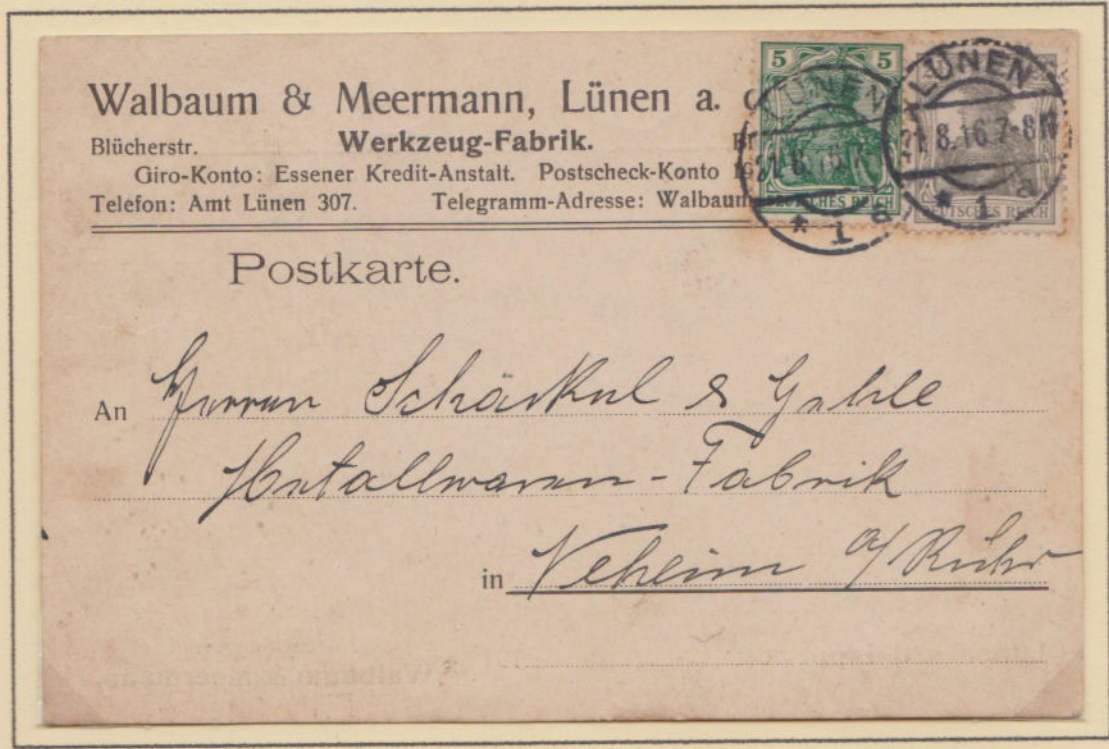 Walbaum & Meermann, Lünen a.
Blücherstr. Werkzeug-Fabrik.
Giro-Konto: Essener Kredit-Anstalt. Postscheck-Konto
Telefon: Amt Lünen 307. Telegramm-Adresse: Walbaum
5 5
DEUTSCHES REICH
DEUTSCHES REICH
LÜNEN
21.8.16.7-8N
* 1 d
LÜNEN
21.8.16.7-8N
* 1 d
Postkarte.
An Herren Schäckel & Gehle
Metallwaren-Fabrik
in Neheim a/Ruhr